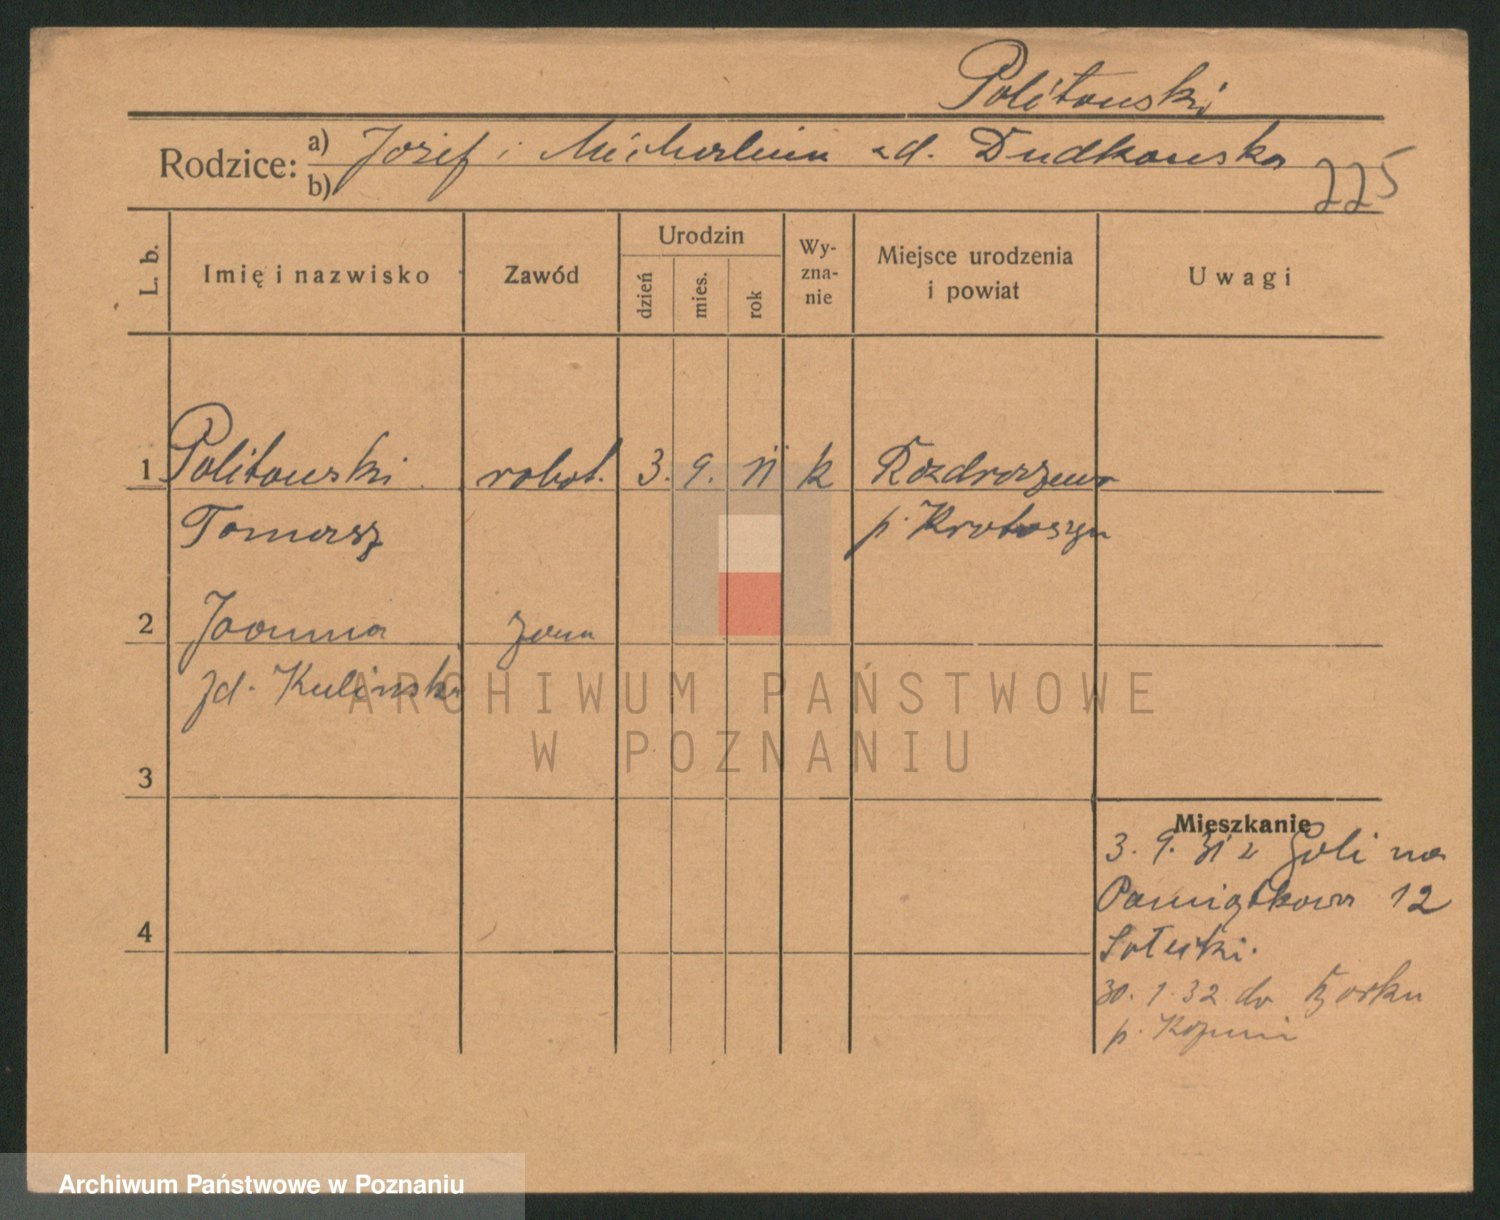 Politowski
Rodzice: a) Józef i Michalina zd. Dudkowska
b)
225
L. b.
Imię i nazwisko
Zawód
Urodzin
dzień
mies.
rok
Wy-
zna-
nie
Miejsce urodzenia
i powiat
Uwagi
1 Politowski robot. 3. 9. 11 k Rozdrażewo
Tomasz p. Krotoszyn
2 Joanna żona
zd. Kulińska
ARCHIWUM PAŃSTWOWE
W POZNANIU
3
Mieszkanie
3. 9. 31 z Goli na
Pamiątkowa 12
4
30. 1. 32 do
p.
Archiwum Państwowe w Poznaniu